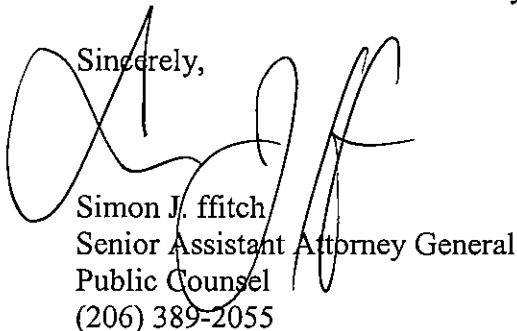 Sincerely,
Simon J. ffitch
Senior Assistant Attorney General
Public Counsel
(206) 389-2055